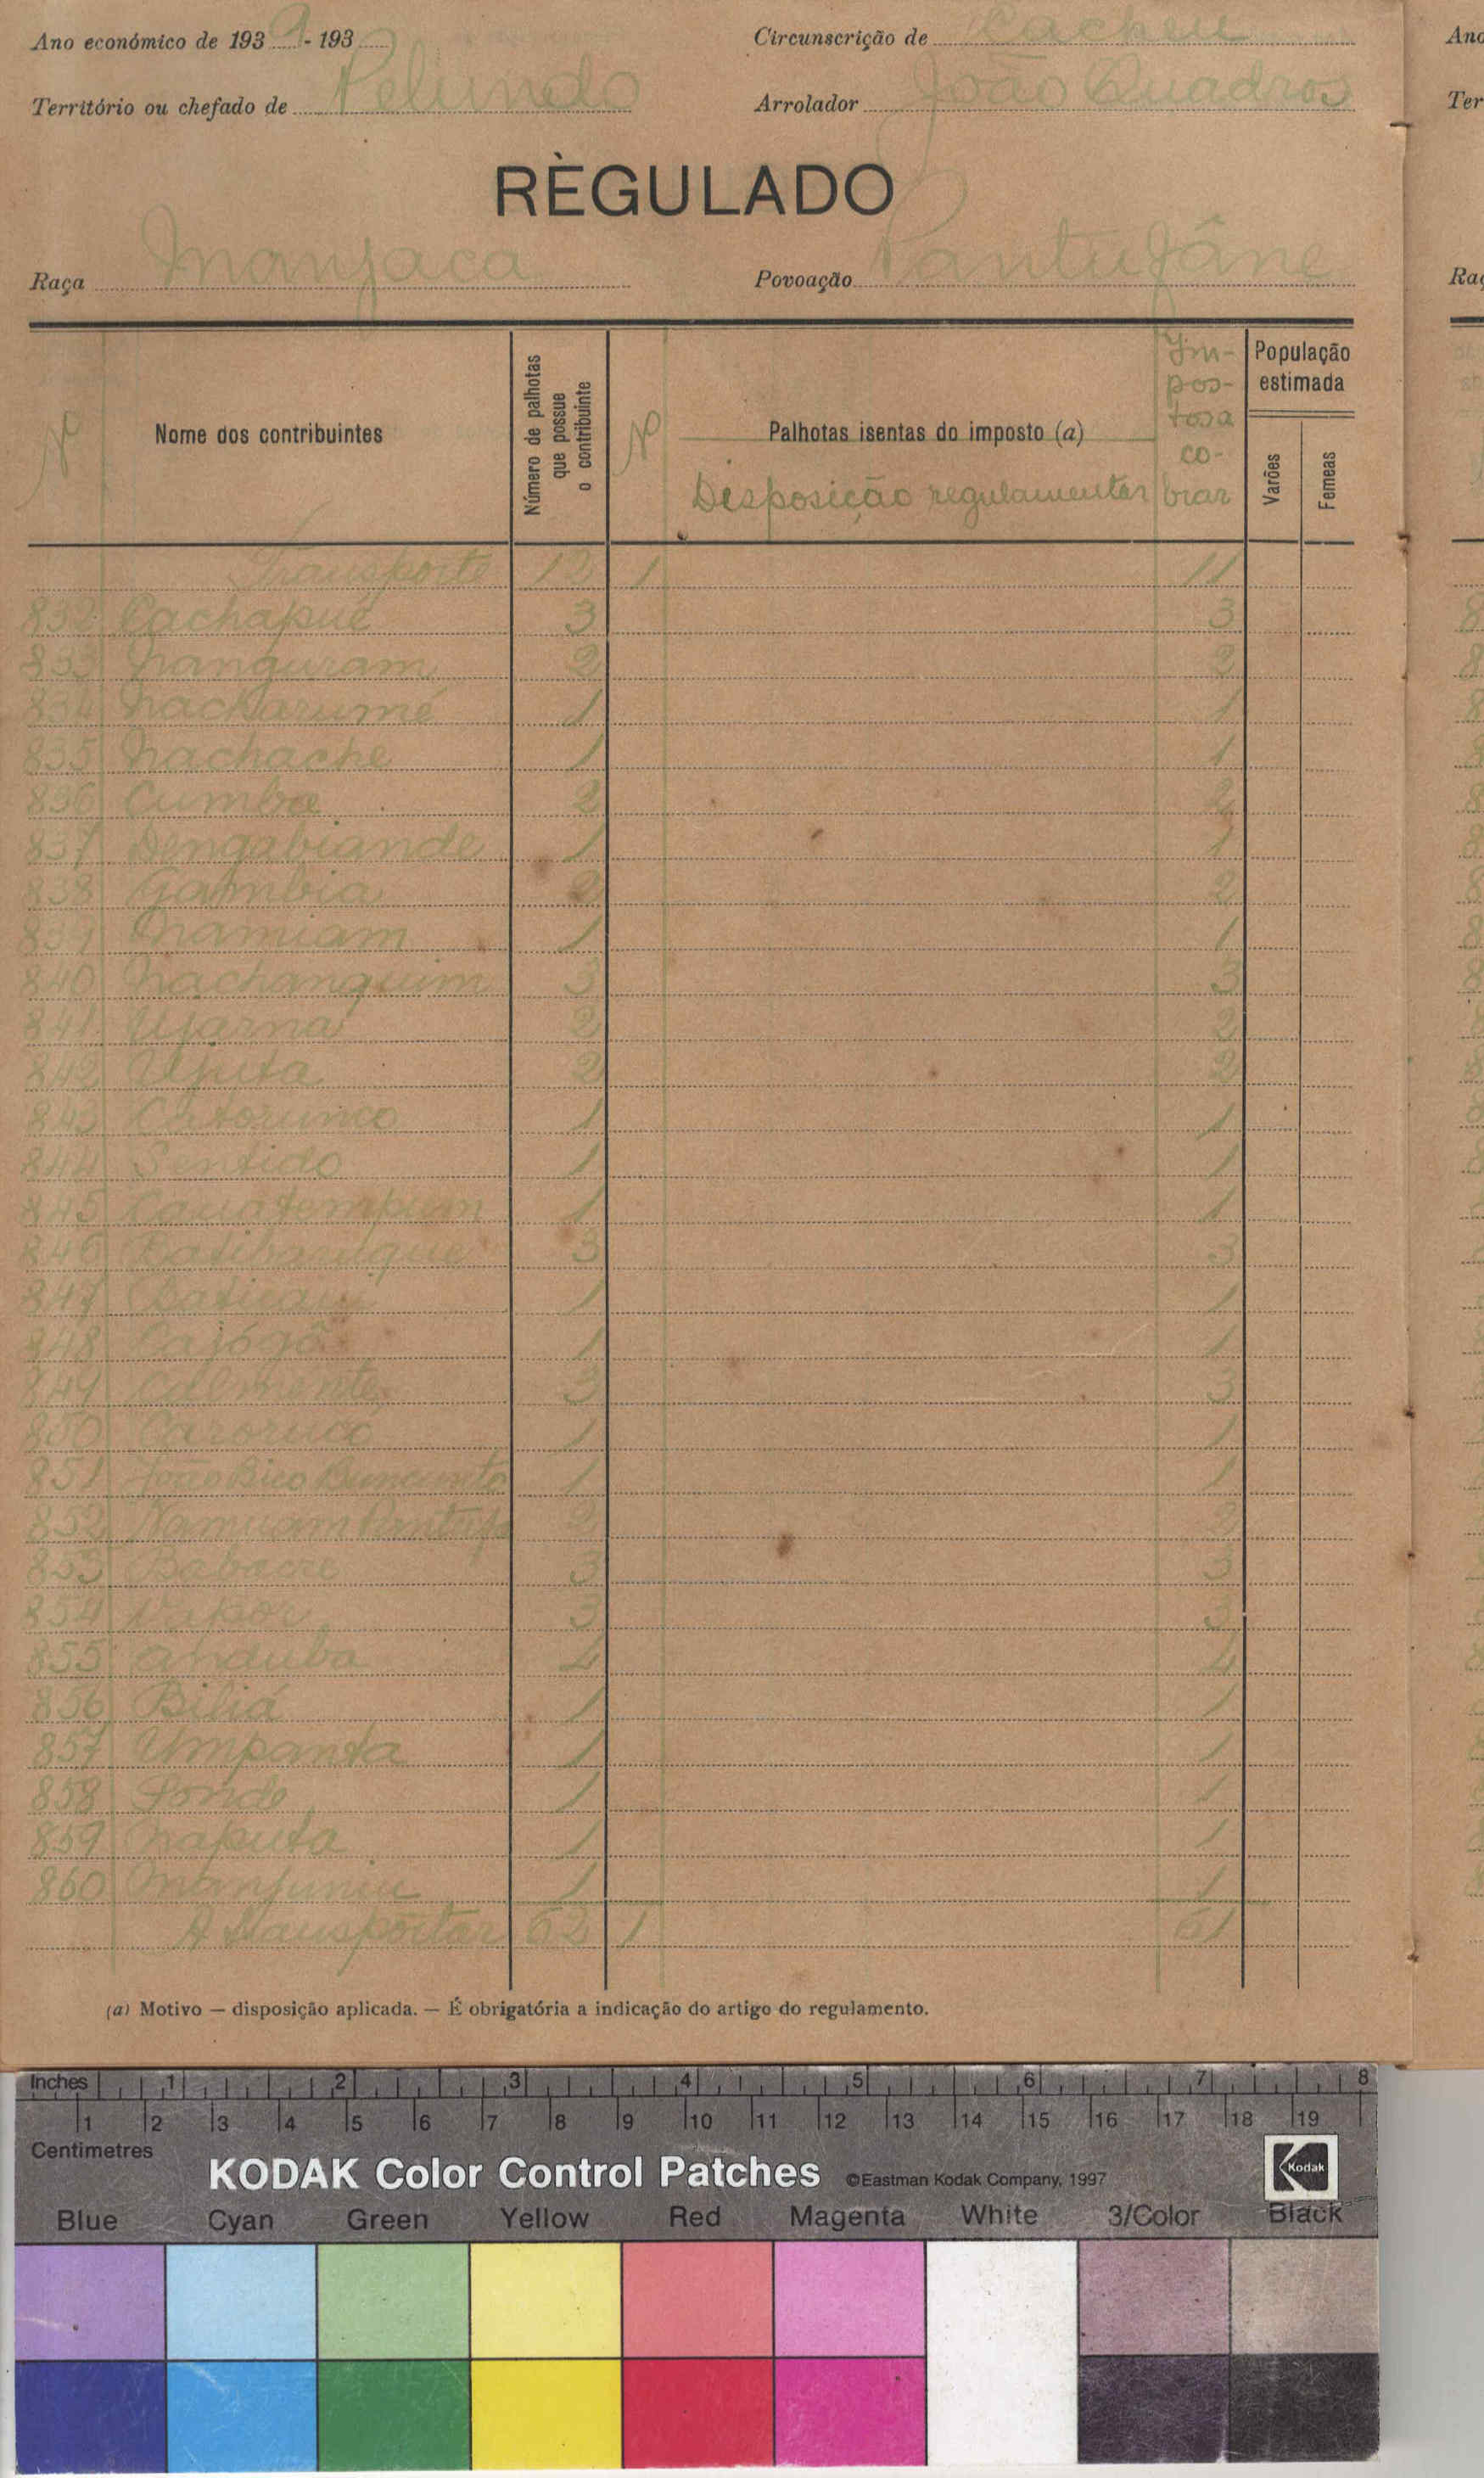 Ano económico de 1939 - 193 Circunscrição de Cacheu
Território ou chefado de Pelundo Arrolador João Quadros
RÈGULADO
Raça Manjaca Povoação Pantufâne
Nº Nome dos contribuintes Número de palhotas que possue o contribuinte Nº Palhotas isentas do imposto (a) Disposição regulamentar Im-pos-tos a co-brar População estimada Varões Femeas
Transporte 12 1 11
832 Cachapué 3 3
833 Nanguram 2 2
834 Nacharumé 1 1
835 Nachache 1 1
836 Cumba 2 2
837 Dengabiande 1 1
838 Gambia 2 2
839 Namuiam 1 1
840 Nachanquim 3 3
841 Ujarna 2 2
842 Uputa 2 2
843 Catorunco 1 1
844 Sentido 1 1
845 Cauatempum 1 1
846 3 3
847 1 1
848 Cajógó 1 1
849 3 3
850 Caroruco 1 1
851 João Bico 1 1
852 Namuiam 2 2
853 Babacre 3 3
854 Napor 3 3
855 Anduba 4 4
856 Biliá 1 1
857 Umpanta 1 1
858 Ponde 1 1
859 Naputa 1 1
860 Manjuniu 1 1
A transportar 62 1 61
(a) Motivo — disposição aplicada. — É obrigatória a indicação do artigo do regulamento.
Inches 1 2 3 4 5 6 7 8
1 2 3 4 5 6 7 8 9 10 11 12 13 14 15 16 17 18 19
Centimetres
KODAK Color Control Patches ©Eastman Kodak Company, 1997 Kodak
Blue Cyan Green Yellow Red Magenta White 3/Color Black